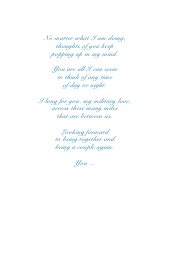 No matter what I am doing,
thoughts of you keep
popping up in my mind.
You are all I can seem
to think of any time
of day or night.
I long for you, my military love,
across these many miles
that are between us.
Looking forward
to being together and
being a couple again.
You....